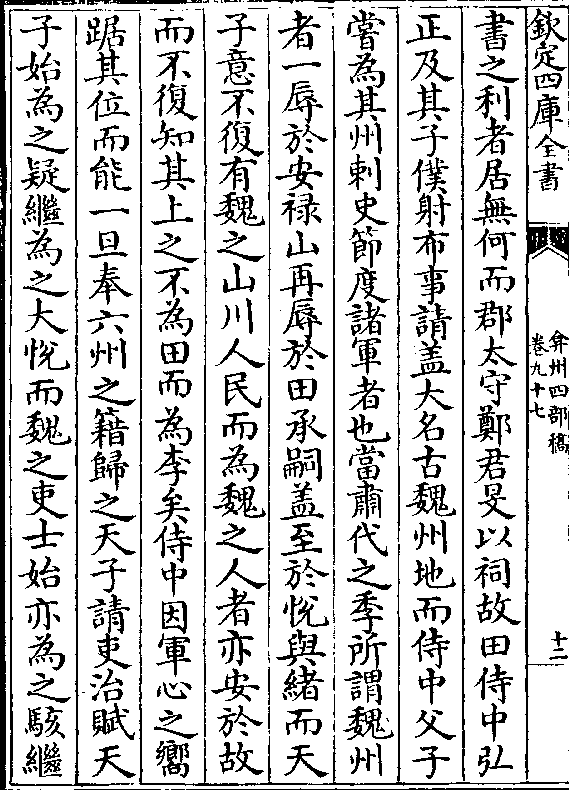 欽定四庫全書
弇州四部稿
卷九十七
十二
書之利者居無何而郡太守鄭君旻以祠故田侍中弘
正及其子僕射布事請蓋大名古魏州地而侍中父子
嘗為其州刺史節度諸軍者也當肅代之季所謂魏州
者一辱於安禄山再辱於田承嗣蓋至於悅與緒而天
子意不復有魏之山川人民而為魏之人者亦安於故
而不復知其上之不為田而為李矣侍中因軍心之嚮
踞其位而能一旦奉六州之籍歸之天子請吏治賦天
子始為之疑繼為之大悅而魏之吏士始亦為之駭繼